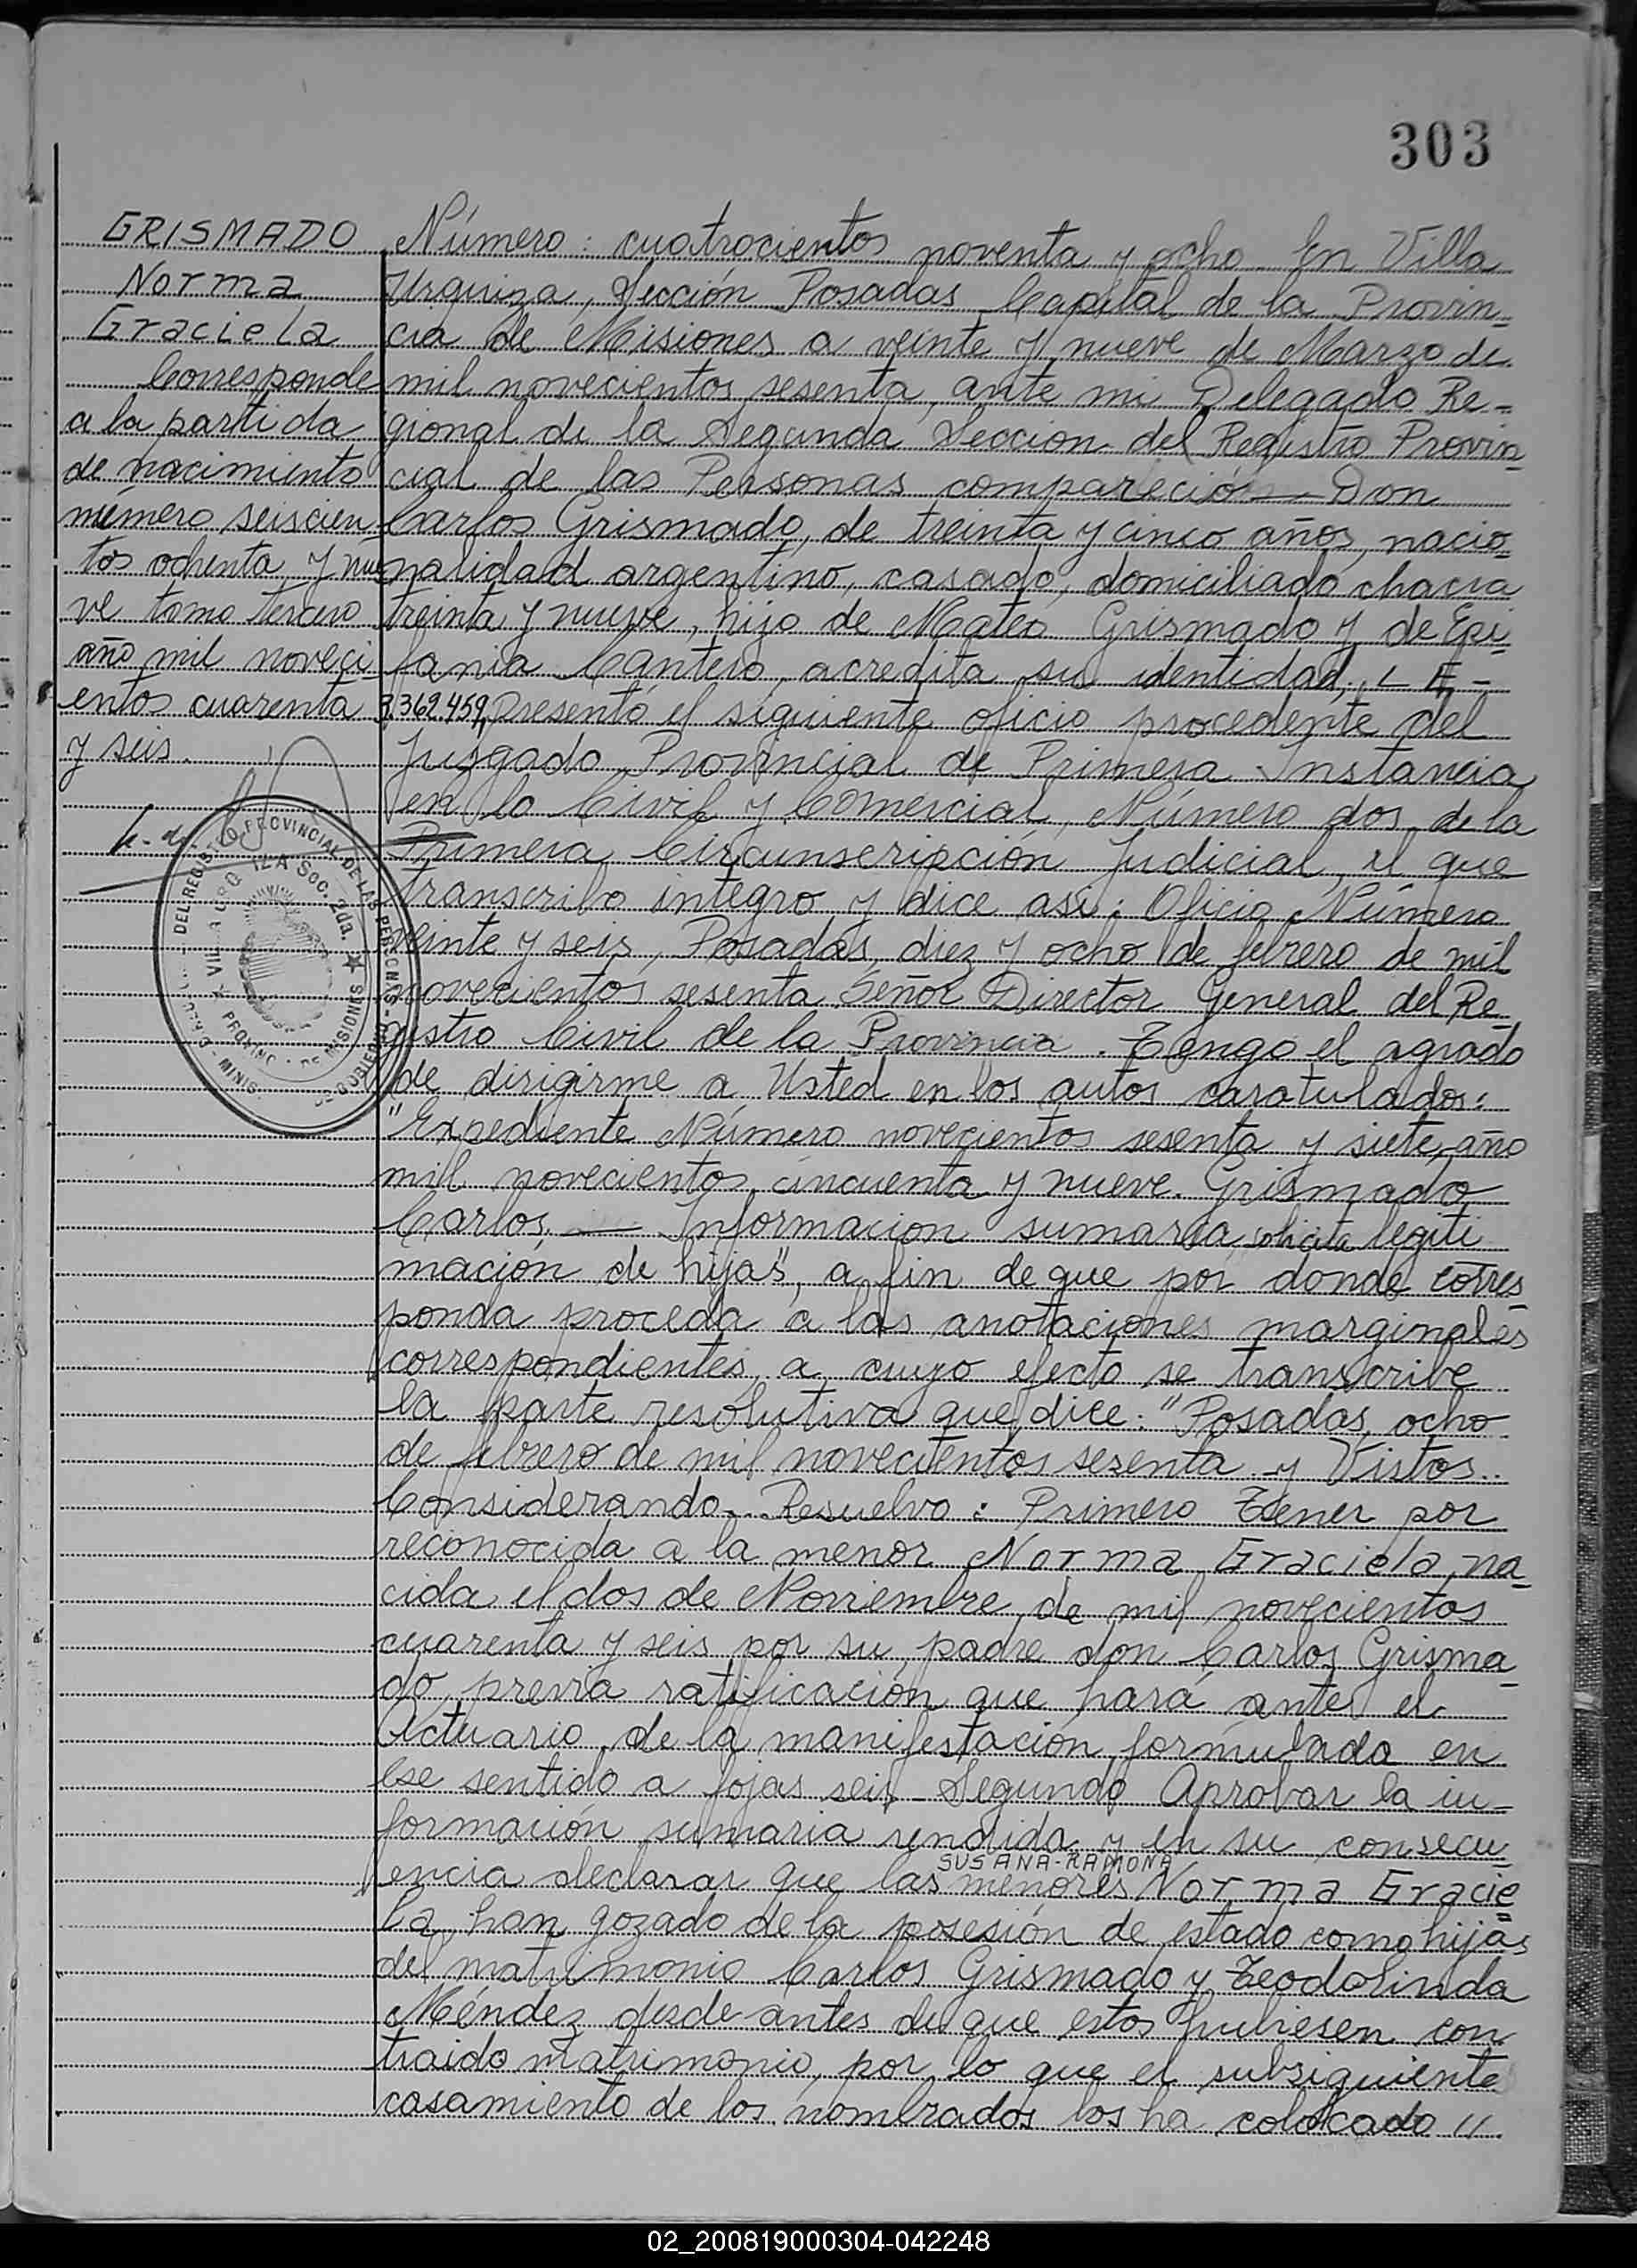 303
GRISMADO
Norma
Graciela
Corresponde
a la partida
de nacimiento
número seiscien
tos ochenta y nue
ve tomo tercero
año mil noveci
entos cuarenta
y seis.
DEL REGISTRO PROVINCIAL DE LAS PERSONAS
Soc. 2da.
MISIONES
Número: cuatrocientos noventa y ocho En Villa
Urquiza, Sección Posadas Capital de la Provin-
cia de Misiones a veinte y nueve de Marzo de
mil novecientos sesenta, ante mi Delegado Re-
gional de la Segunda Sección del Registro Provin
cial de las Personas compareció — Don
Carlos Grismado, de treinta y cinco años, nacio-
nalidad argentino, casado, domiciliado chacra
treinta y nueve, hijo de Mateo Grismado y de Epi-
fania Cantero, acredita su identidad, L E -
3.362.459, presentó el siguiente oficio procedente del
Juzgado Provincial de Primera Instancia
en lo Civil y Comercial, Número dos, de la
Primera Circunscripción Judicial, el que
transcribo integro y dice asi: Oficio Número
veinte y seis, Posadas, diez y ocho de febrero de mil
novecientos sesenta Señor Director General del Re-
gistro Civil de la Provincia. Tengo el agrado
de dirigirme a Usted en los autos caratulados:
"Expediente Número novecientos sesenta y siete, año
mil novecientos cincuenta y nueve. Grismado
Carlos — Informacion sumaria solicita legiti
mación de hijas", a fin de que por donde corres-
ponda proceda a las anotaciones marginales
correspondientes, a cuyo efecto se transcribe
la parte resolutiva que dice: "Posadas, ocho
de febrero de mil novecientos sesenta y Vistos..
Considerando... Resuelvo: Primero Tener por
reconocida a la menor Norma Graciela, na-
cida el dos de Noviembre, de mil novecientos
cuarenta y seis por su padre don Carlos Grisma-
do, previa ratificación que hará ante el
Actuario de la manifestación formulada en
ese sentido a fojas seis - Segundo Aprobar la in-
formación sumaria rendida y en su consecu-
SUSANA-RAMONA
encia declarar que las menores Norma Gracie-
la han gozado de la posesión de estado como hijas
del matrimonio Carlos Grismado y Teodolinda
Méndez desde antes de que estos hubiesen con-
traido matrimonio, por lo que el subsiguiente
casamiento de los nombrados los ha colocado //
02_200819000304-042248